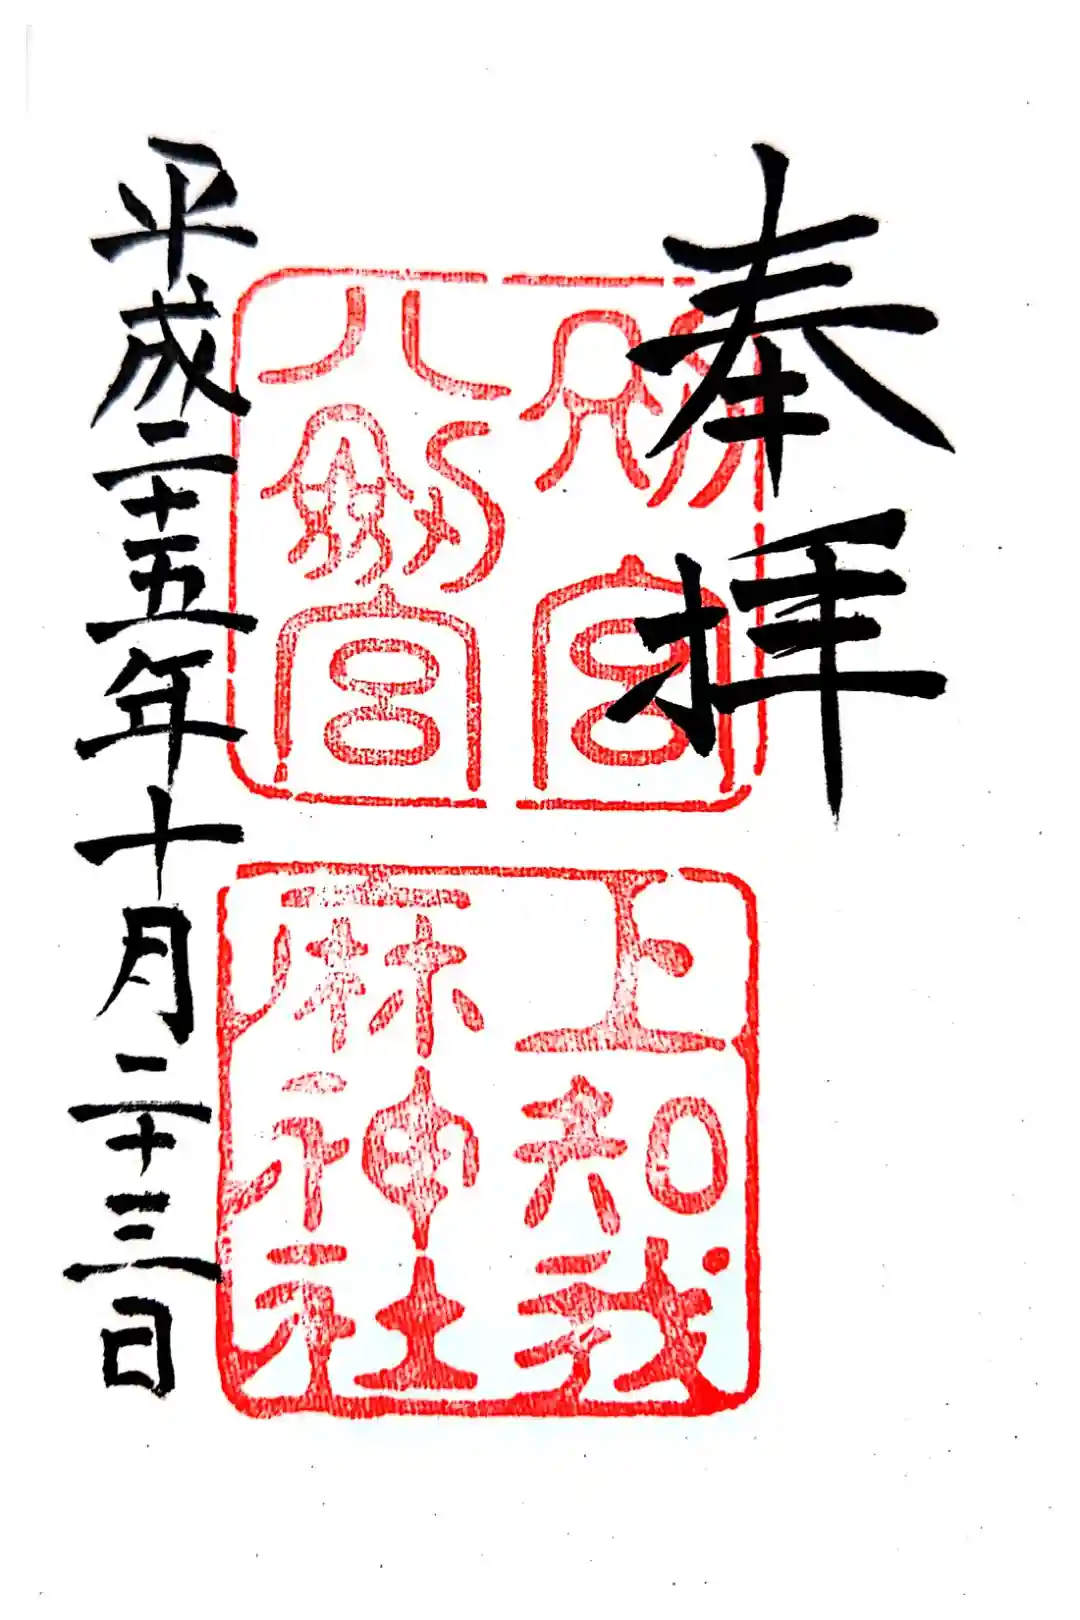 奉拝
八剱宮
上知我
麻神社
平成二十五年十月二十三日